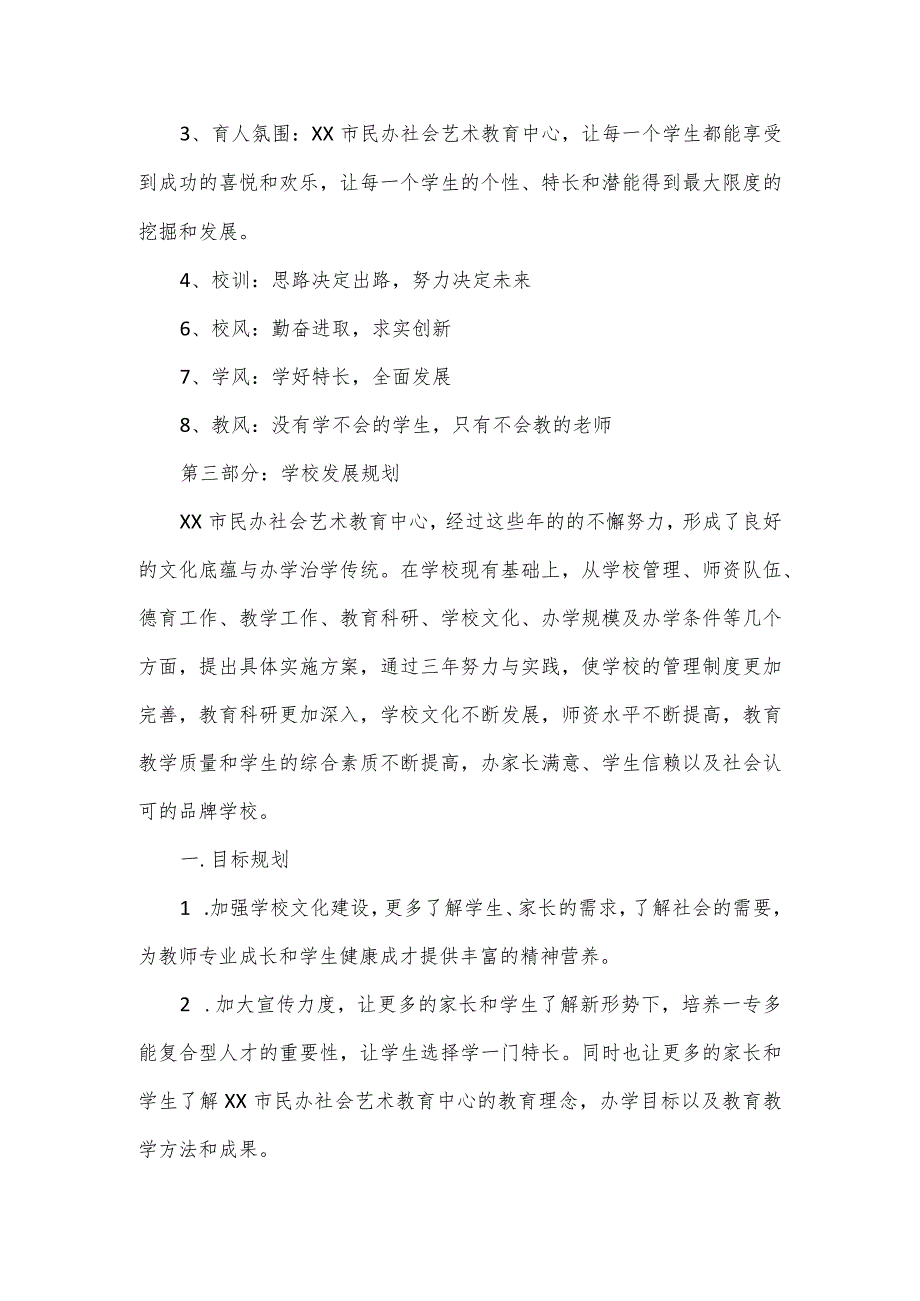 3、育人氛围：XX 市民办社会艺术教育中心，让每一个学生都能享受
到成功的喜悦和欢乐，让每一个学生的个性、特长和潜能得到最大限度的
挖掘和发展。
4、校训：思路决定出路，努力决定未来
6、校风：勤奋进取，求实创新
7、学风：学好特长，全面发展
8、教风：没有学不会的学生，只有不会教的老师
第三部分：学校发展规划
XX 市民办社会艺术教育中心，经过这些年的的不懈努力，形成了良好
的文化底蕴与办学治学传统。在学校现有基础上，从学校管理、师资队伍、
德育工作、教学工作、教育科研、学校文化、办学规模及办学条件等几个
方面，提出具体实施方案，通过三年努力与实践，使学校的管理制度更加
完善，教育科研更加深入，学校文化不断发展，师资水平不断提高，教育
教学质量和学生的综合素质不断提高，办家长满意、学生信赖以及社会认
可的品牌学校。
一. 目标规划
1 .加强学校文化建设，更多了解学生、家长的需求，了解社会的需要，
为教师专业成长和学生健康成才提供丰富的精神营养。
2 .加大宣传力度，让更多的家长和学生了解新形势下，培养一专多
能复合型人才的重要性，让学生选择学一门特长。同时也让更多的家长和
学生了解 XX 市民办社会艺术教育中心的教育理念，办学目标以及教育教
学方法和成果。